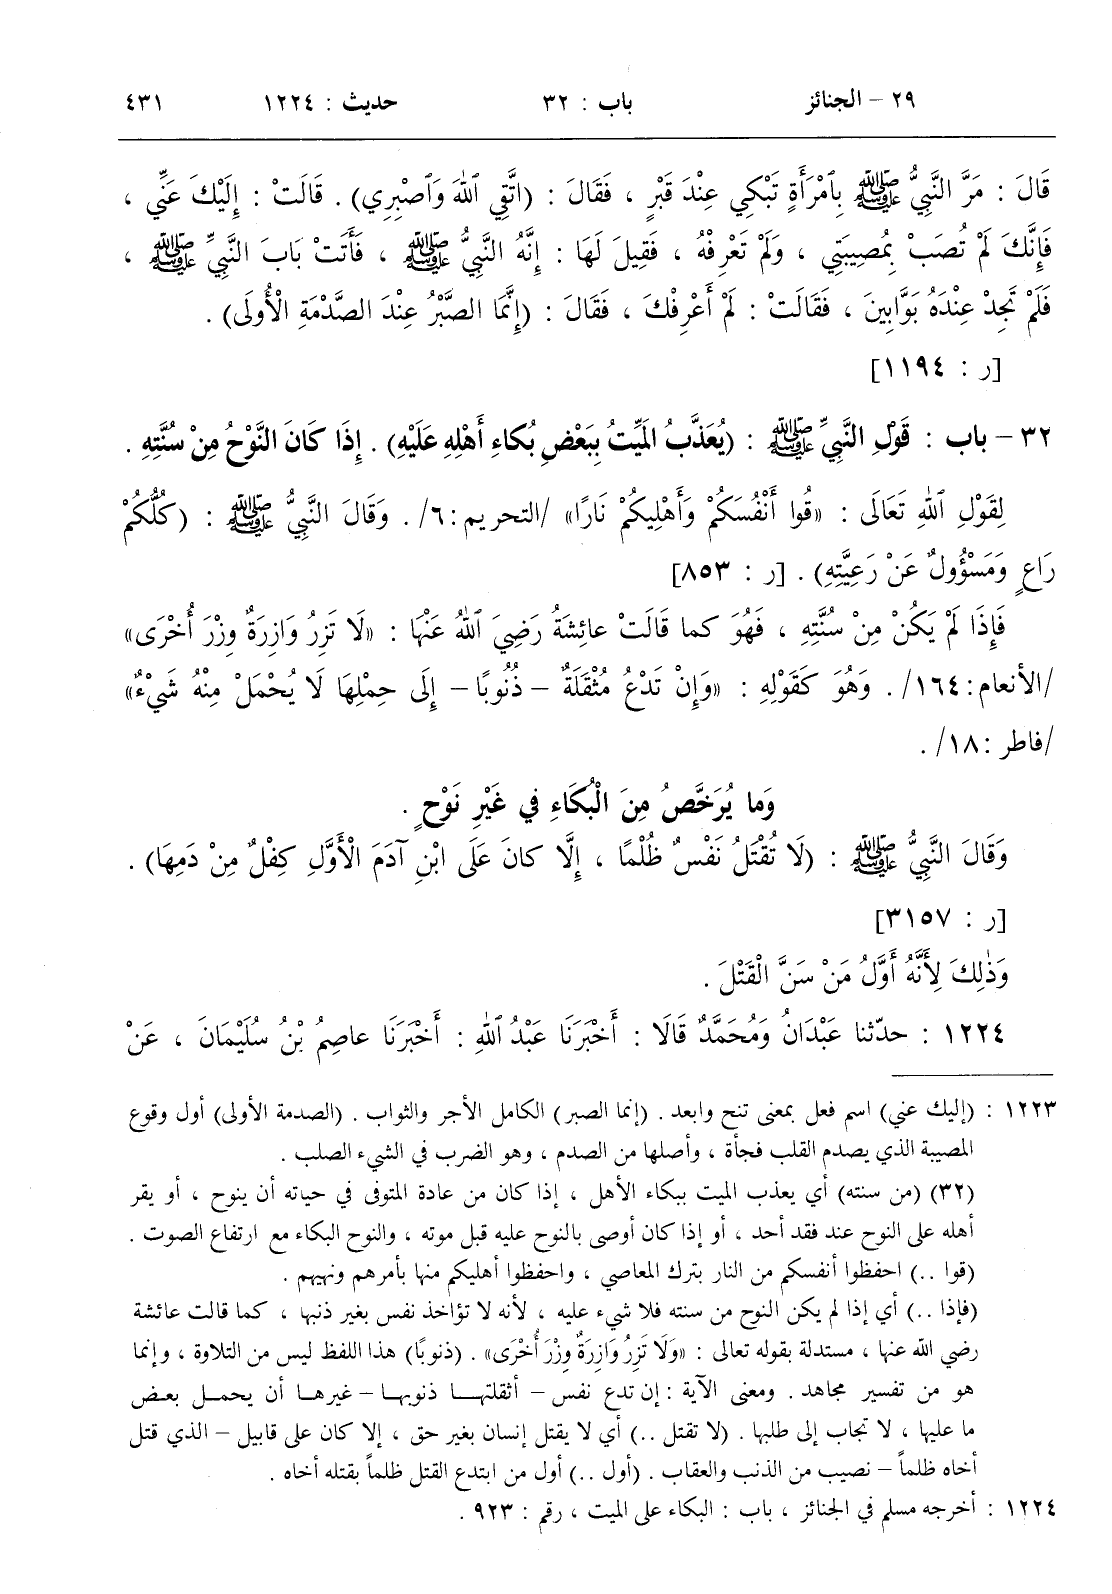 ٢٩ – الجنائز باب : ٣٢ حديث : ١٢٢٤ ٤٣١
قَالَ : مَرَّ النَّبِيُّ ﷺ بِٱمْرَأَةٍ تَبْكِي عِنْدَ قَبْرٍ ، فَقَالَ : (ٱتَّقِي ٱللهَ وَٱصْبِرِي) . قَالَتْ : إِلَيْكَ عَنِّي ،
فَإِنَّكَ لَمْ تُصَبْ بِمُصِيبَتِي ، وَلَمْ تَعْرِفْهُ ، فَقِيلَ لَهَا : إِنَّهُ النَّبِيُّ ﷺ ، فَأَتَتْ بَابَ النَّبِيِّ ﷺ ،
فَلَمْ تَجِدْ عِنْدَهُ بَوَّابِينَ ، فَقَالَتْ : لَمْ أَعْرِفْكَ ، فَقَالَ : (إِنَّمَا الصَّبْرُ عِنْدَ الصَّدْمَةِ الْأُولَى) .
[ر : ١١٩٤]
٣٢ – باب : قَوْلِ النَّبِيِّ ﷺ : (يُعَذَّبُ المَيِّتُ بِبَعْضِ بُكاءِ أَهْلِهِ عَلَيْهِ) . إِذَا كانَ النَّوْحُ مِنْ سُنَّتِهِ .
لِقَوْلِ ٱللهِ تَعَالَى : «قُوا أَنْفُسَكُمْ وَأَهْلِيكُمْ نَارًا» /التحريم : ٦/ . وَقَالَ النَّبِيُّ ﷺ : (كُلُّكُمْ
رَاعٍ وَمَسْؤُولٌ عَنْ رَعِيَّتِهِ) . [ر : ٨٥٣]
فَإِذَا لَمْ يَكُنْ مِنْ سُنَّتِهِ ، فَهُوَ كما قَالَتْ عائِشَةُ رَضِيَ ٱللهُ عَنْهَا : «لَا تَزِرُ وَازِرَةٌ وِزْرَ أُخْرَى»
/الأنعام : ١٦٤/ . وَهُوَ كَقَوْلِهِ : «وَإِنْ تَدْعُ مُثْقَلَةٌ – ذُنُوبًا – إِلَى حِمْلِهَا لَا يُحْمَلْ مِنْهُ شَيْءٌ»
/فاطر : ١٨/ .
وَما يُرَخَّصُ مِنَ الْبُكَاءِ فِي غَيْرِ نَوْحٍ .
وَقَالَ النَّبِيُّ ﷺ : (لَا تُقْتَلُ نَفْسٌ ظُلْمًا ، إِلَّا كانَ عَلَى ابْنِ آدَمَ الْأَوَّلِ كِفْلٌ مِنْ دَمِهَا) .
[ر : ٣١٥٧]
وَذٰلِكَ لِأَنَّهُ أَوَّلُ مَنْ سَنَّ الْقَتْلَ .
١٢٢٤ : حدّثنا عَبْدَانُ وَمُحَمَّدٌ قَالَا : أَخْبَرَنَا عَبْدُ ٱللهِ : أَخْبَرَنَا عاصِمُ بْنُ سُلَيْمَانَ ، عَنْ
١٢٢٣ : (إليك عني) اسم فعل بمعنى تنح وابعد . (إنما الصبر) الكامل الأجر والثواب . (الصدمة الأولى) أول وقوع
المصيبة الذي يصدم القلب فجأة ، وأصلها من الصدم ، وهو الضرب في الشيء الصلب .
(٣٢) (من سنته) أي يعذب الميت ببكاء الأهل ، إذا كان من عادة المتوفى في حياته أن ينوح ، أو يقر
أهله على النوح عند فقد أحد ، أو إذا كان أوصى بالنوح عليه قبل موته ، والنوح البكاء مع ارتفاع الصوت .
(قوا ..) احفظوا أنفسكم من النار بترك المعاصي ، واحفظوا أهليكم منها بأمرهم ونهيهم .
(فإذا ..) أي إذا لم يكن النوح من سنته فلا شيء عليه ، لأنه لا تؤاخذ نفس بغير ذنبها ، كما قالت عائشة
رضي الله عنها ، مستدلة بقوله تعالى : «وَلَا تَزِرُ وَازِرَةٌ وِزْرَ أُخْرَى» . (ذنوبًا) هذا اللفظ ليس من التلاوة ، وإنما
هو من تفسير مجاهد . ومعنى الآية : إن تدع نفس – أثقلتها ذنوبها – غيرها أن يحمل بعض
ما عليها ، لا تجاب إلى طلبها . (لا تقتل ..) أي لا يقتل إنسان بغير حق ، إلا كان على قابيل – الذي قتل
أخاه ظلماً – نصيب من الذنب والعقاب . (أول ..) أول من ابتدع القتل ظلماً بقتله أخاه .
١٢٢٤ : أخرجه مسلم في الجنائز ، باب : البكاء على الميت ، رقم : ٩٢٣ .